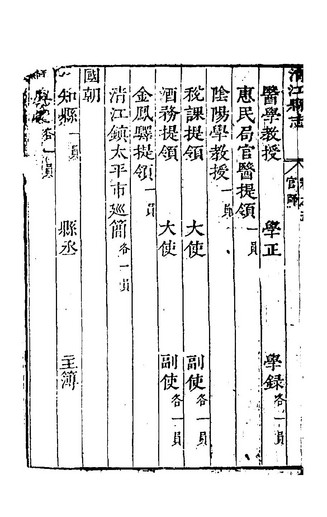 清江縣志
官師
醫學教授 學正 學錄各一員
惠民局官醫提領一員
陰陽學教授一員
稅課提領 大使 副使各一員
酒務提領 大使 副使各一員
金鳳驛提領一員
清江鎮太平市巡簡各一員
國朝
知縣一員 縣丞 主簿
各一員